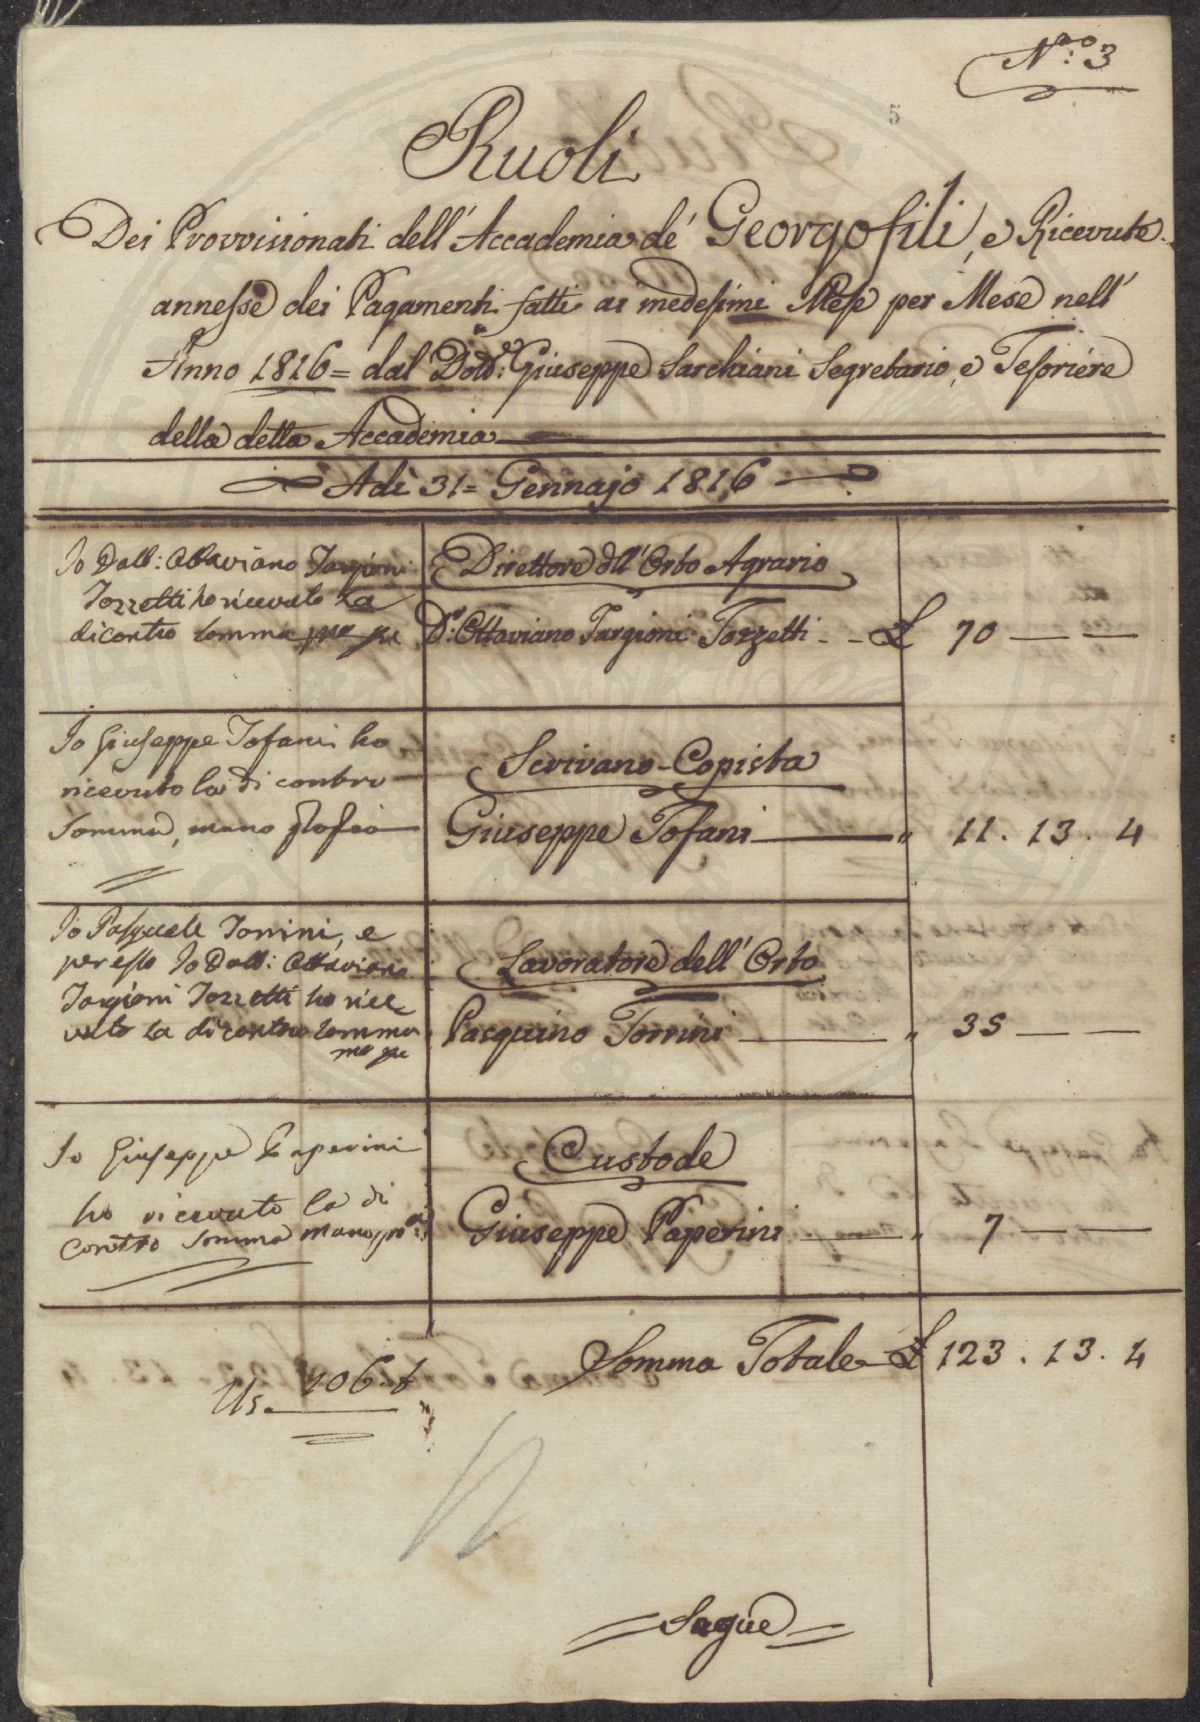 N.° 3
5
Ruoli
Dei Provvisionati dell'Accademia de' Georgofili, e Ricevute
annesse dei Pagamenti fatti ai medesimi Mese per Mese nell'
Anno 1816 = dal Dott.e Giuseppe Sarchiani Segretario, e Tesoriere
della detta Accademia
Adì 31 = Gennajo 1816
Io Dott: Ottaviano Targioni
Tozzetti ho ricevuto la
di contro somma
Direttore dell'Orto Agrario
D.e Ottaviano Targioni Tozzetti - - £ 70 — —
Io Giuseppe Tofani ho
ricevuto la di contro
somma, mano
Scrivano-Copista
Giuseppe Tofani — " 11 . 13 . 4
Io Pasquale Torrini, e
per esso Io Dott: Ottaviano
Targioni Tozzetti ho rice
vuto la di contro somma
Lavoratore dell'Orto
Pasquino Torrini — " 35 — —
Io Giuseppe Paperini
ho ricevuto la di
contro somma mano pp.a
Custode
Giuseppe Paperini — " 7 — —
Somma Totale £ 123 . 13 . 4
106.
Segue